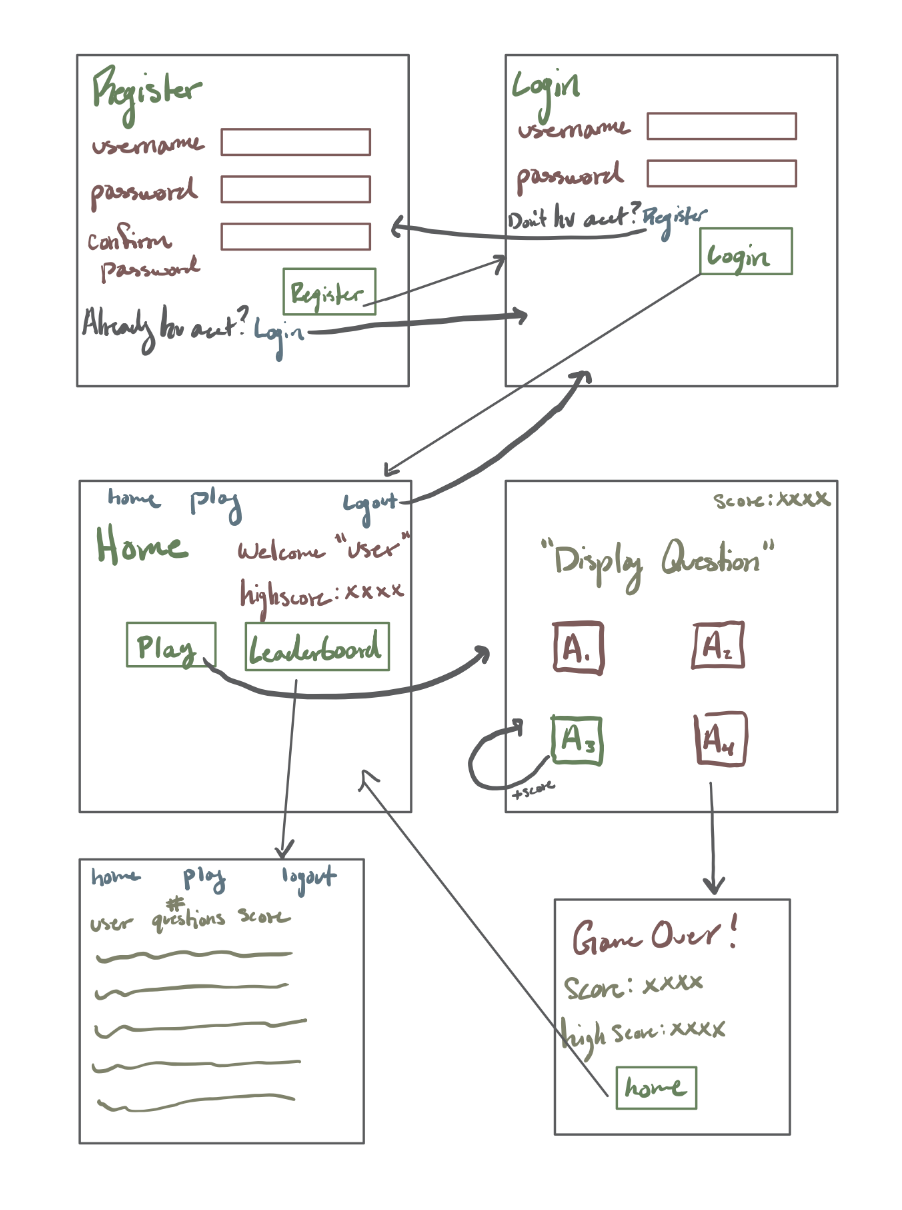 Register
username
password
confirm
password
Register
Already hv acct? Login
Login
username
password
Don't hv acct? Register
Login
home play Logout
Home
Welcome "user"
highscore: xxxx
Play Leaderboard
Score: xxxx
"Display Question"
A1 A2
A3 A4
+score
home play logout
#
user questions score
Game Over!
Score: xxxx
high score: xxxx
home